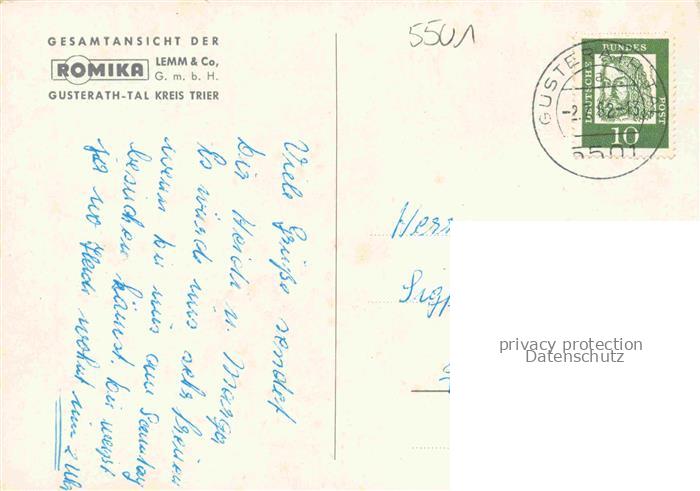 GESAMTANSICHT DER
ROMIKA LEMM & Co,
G. m. b. H.
GUSTERATH-TAL KREIS TRIER
5501
DEUTSCHE BUNDES POST
10
GUSTERATH
5501
Viele Grüße sendet
dir Heidi u. Marga
Es würde uns sehr freuen
wenn du uns am Sonntag
besuchen kämst. du weist
ja wo Heidi wohnt um 2 Uhr
Herr
privacy protection
Datenschutz